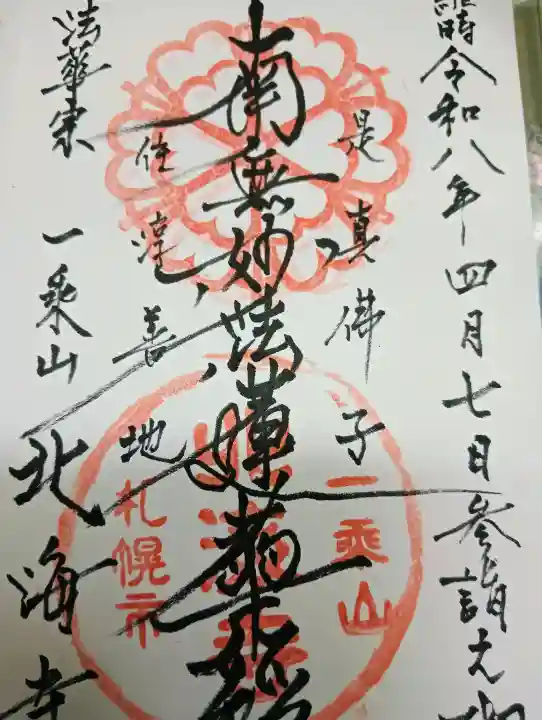 維時令和八年四月七日参詣之
是真佛子
南無妙法蓮華経
住淳善地
法華宗
一乗山
北海寺
一乘山
北海寺
札幌市